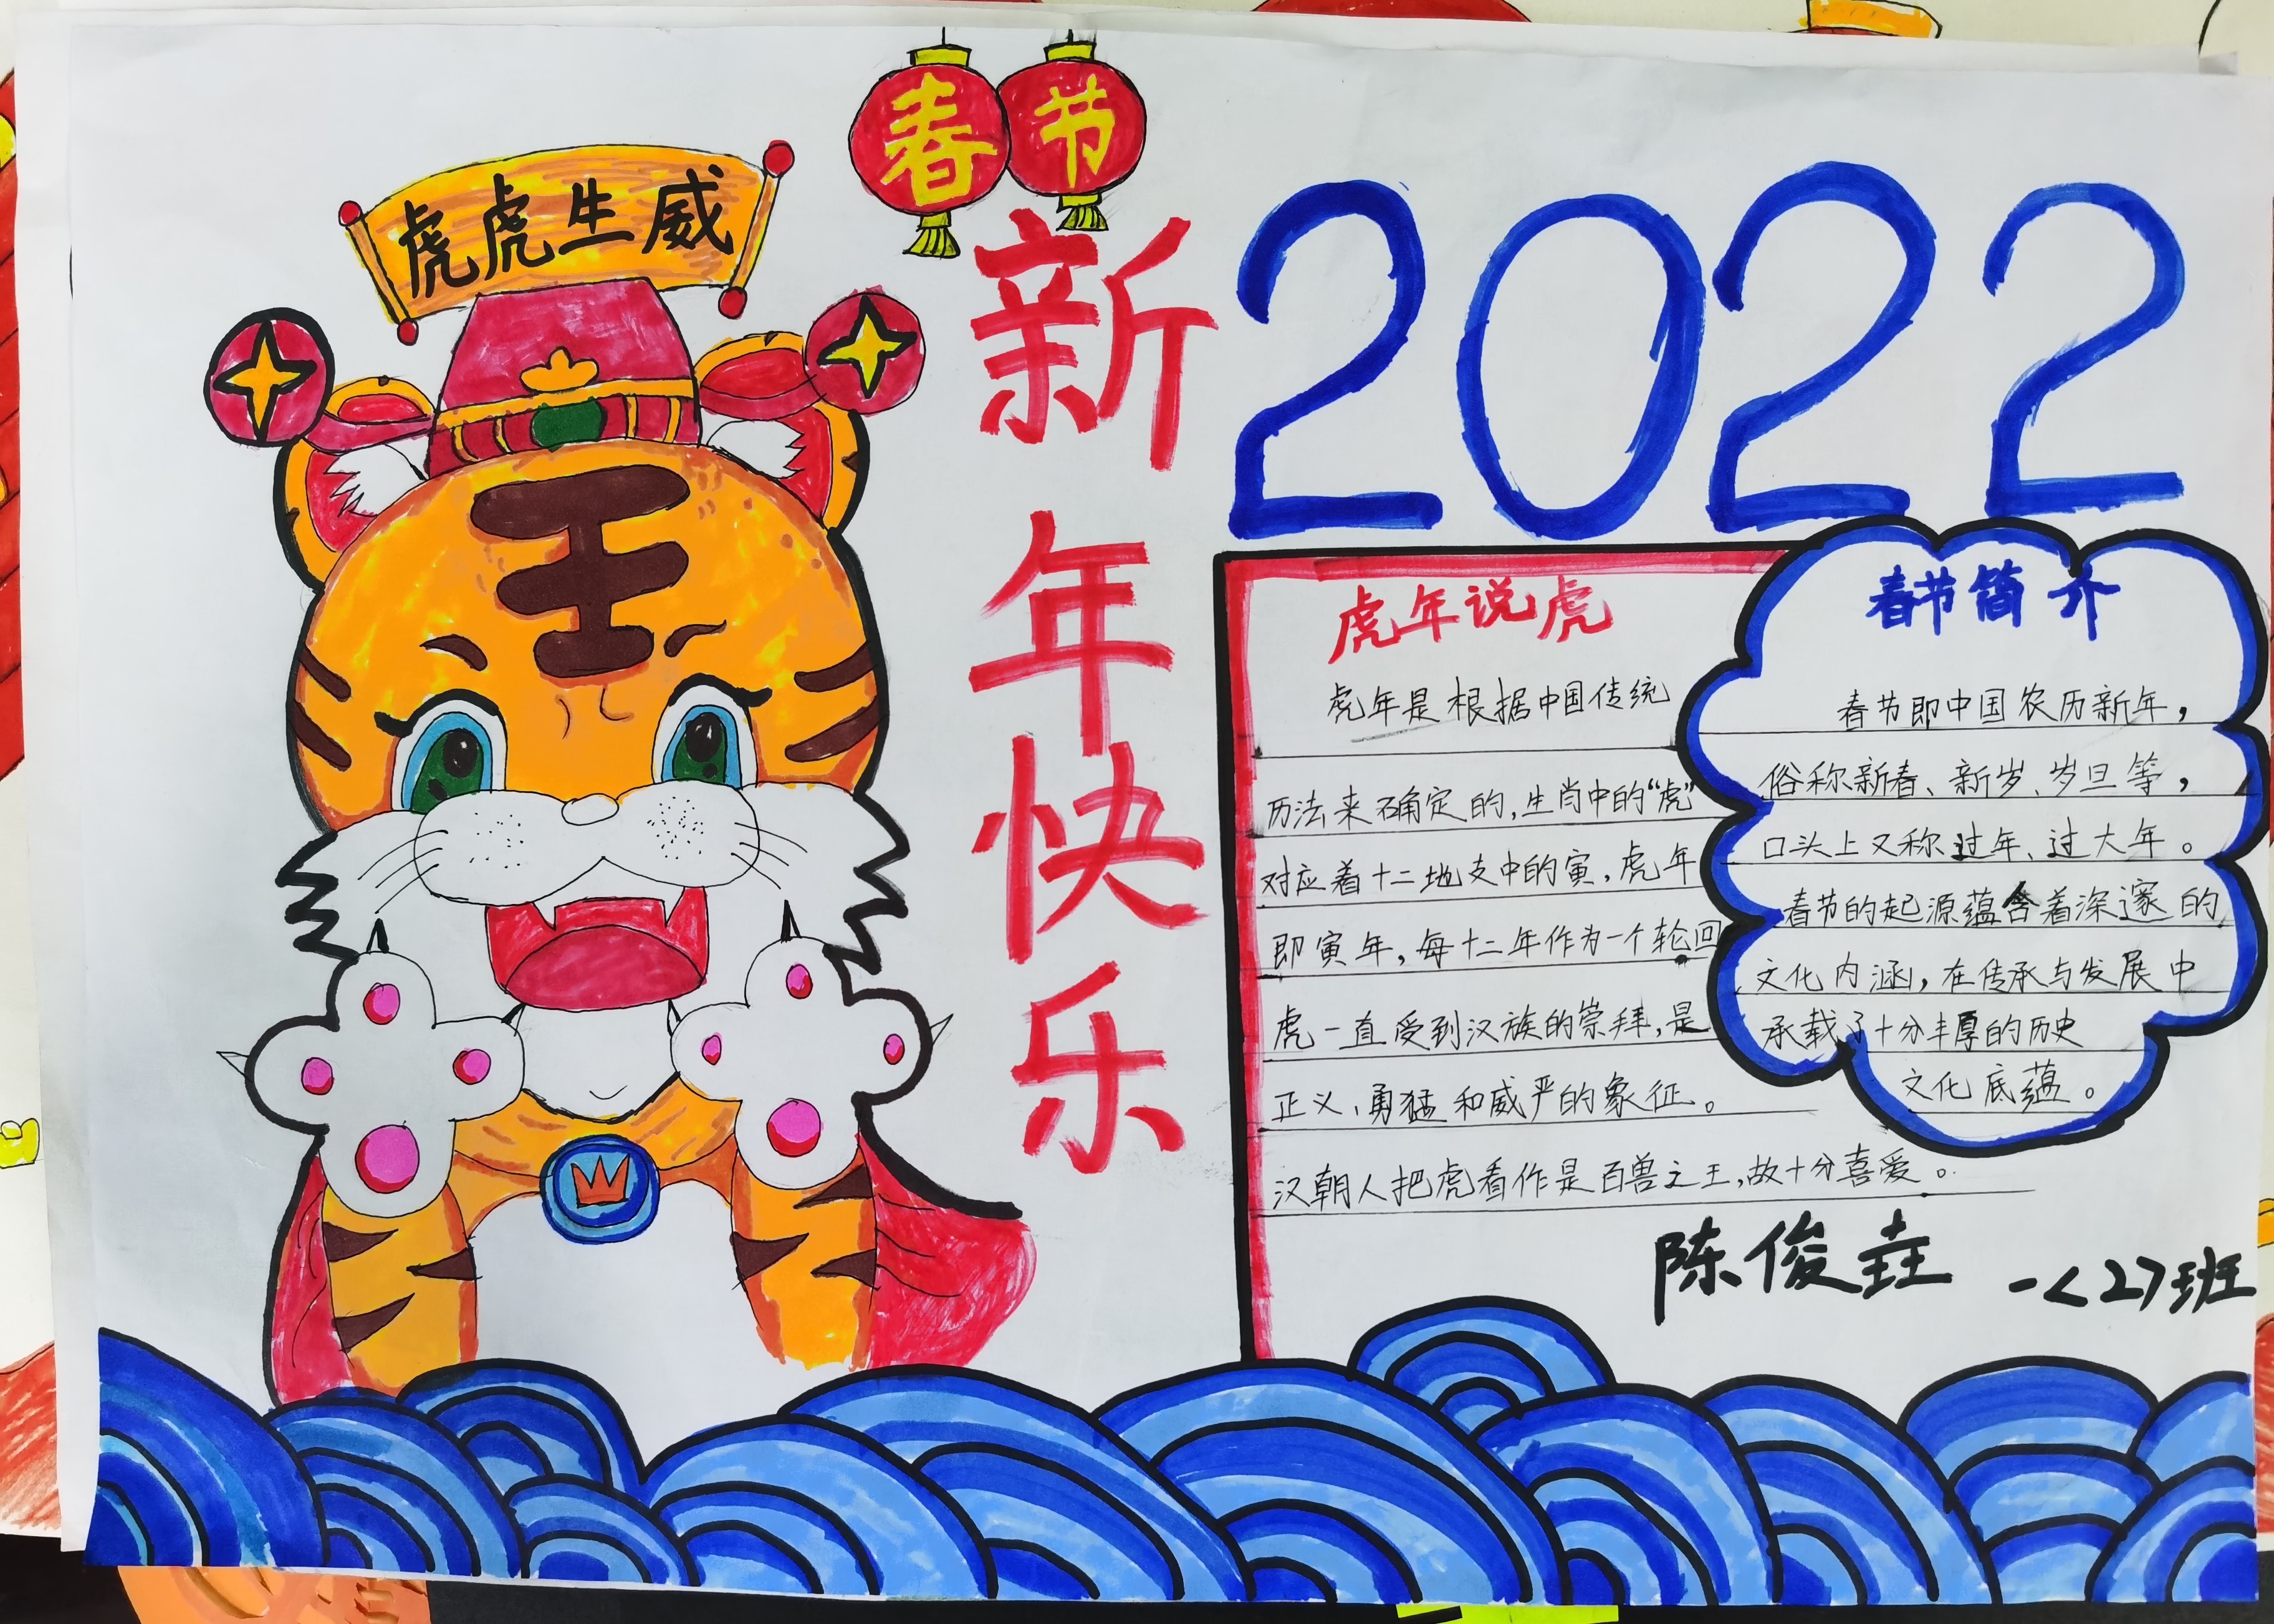 春节
虎虎生威
王
新年快乐
2022
虎年说虎
虎年是根据中国传统
历法来确定的，生肖中的“虎”
对应着十二地支中的寅，虎年
即寅年，每十二年作为一个轮回
虎一直受到汉族的崇拜，是
正义、勇猛和威严的象征。
汉朝人把虎看作是百兽之王，故十分喜爱。
春节简介
春节即中国农历新年，
俗称新春、新岁、岁旦等，
口头上又称过年、过大年。
春节的起源蕴含着深邃的
文化内涵，在传承与发展中
承载了十分丰厚的历史
文化底蕴。
陈俊 一<2>班